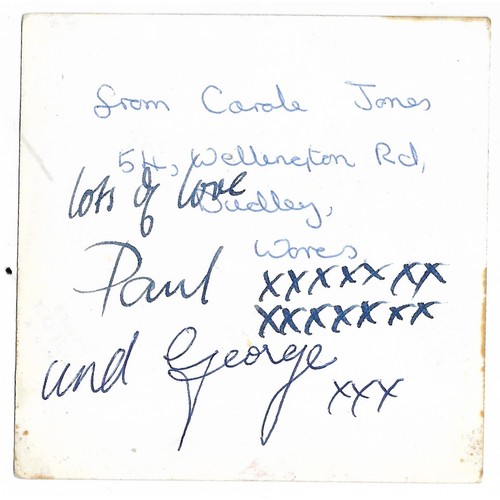 from Carole Jones
54, Wellington Rd,
lots of love
Dudley,
Worcs
Paul xxxxxxx
xxxxxxx
and George
xxx